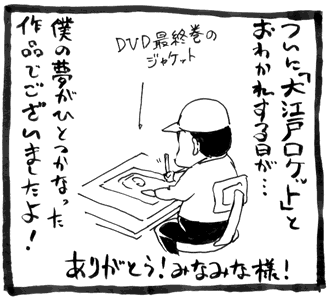 ついに「大江戸ロケット」と
おわかれする日が…
DVD最終巻の
ジャケット
僕の夢がひとつかなった
作品でございましたよ!
ありがとう!みなみな様!